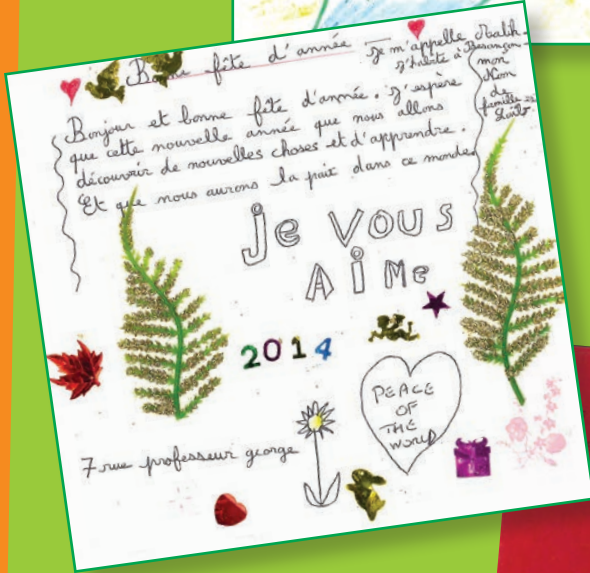 Bonne fête d'année
je m'appelle Malik.
j'habite à Besançon.
mon
Nom
de
famille est
Bonjour et bonne fête d'année. j'espère
que cette nouvelle année que nous allons
découvrir de nouvelles choses et d'apprendre.
Et que nous aurons la paix dans ce monde.
Je VOUS
AiMe
2014
PEACE
OF
THE
WORLD
7 rue professeur george